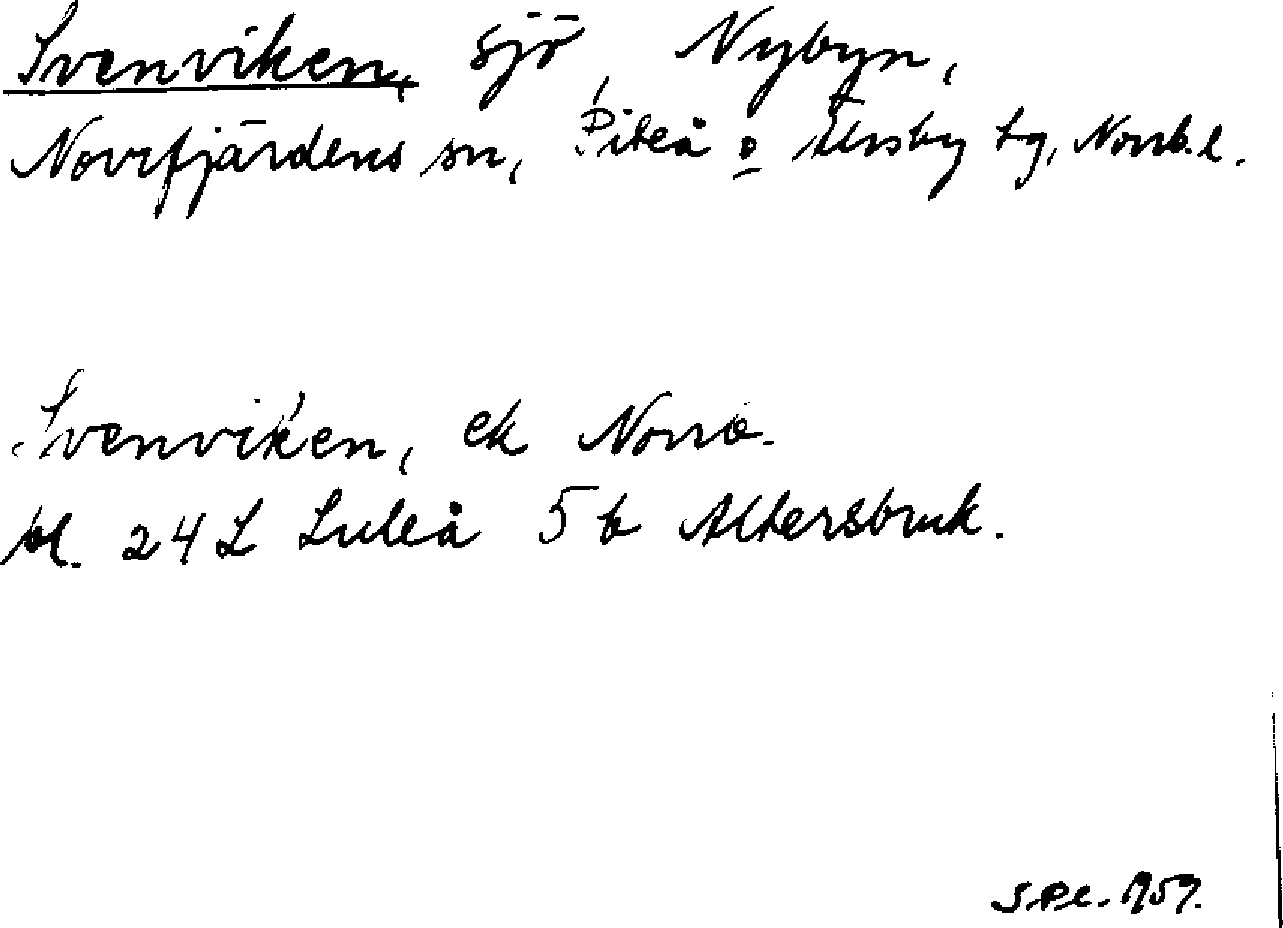 Svenviken, sjö, Nybyn,
Norrfjärdens sn, Piteå o Älvsby tg, Norrb. l.
Svenviken, ek Norra
bl. 24 L Luleå 5 b Altersbruk.
1959.